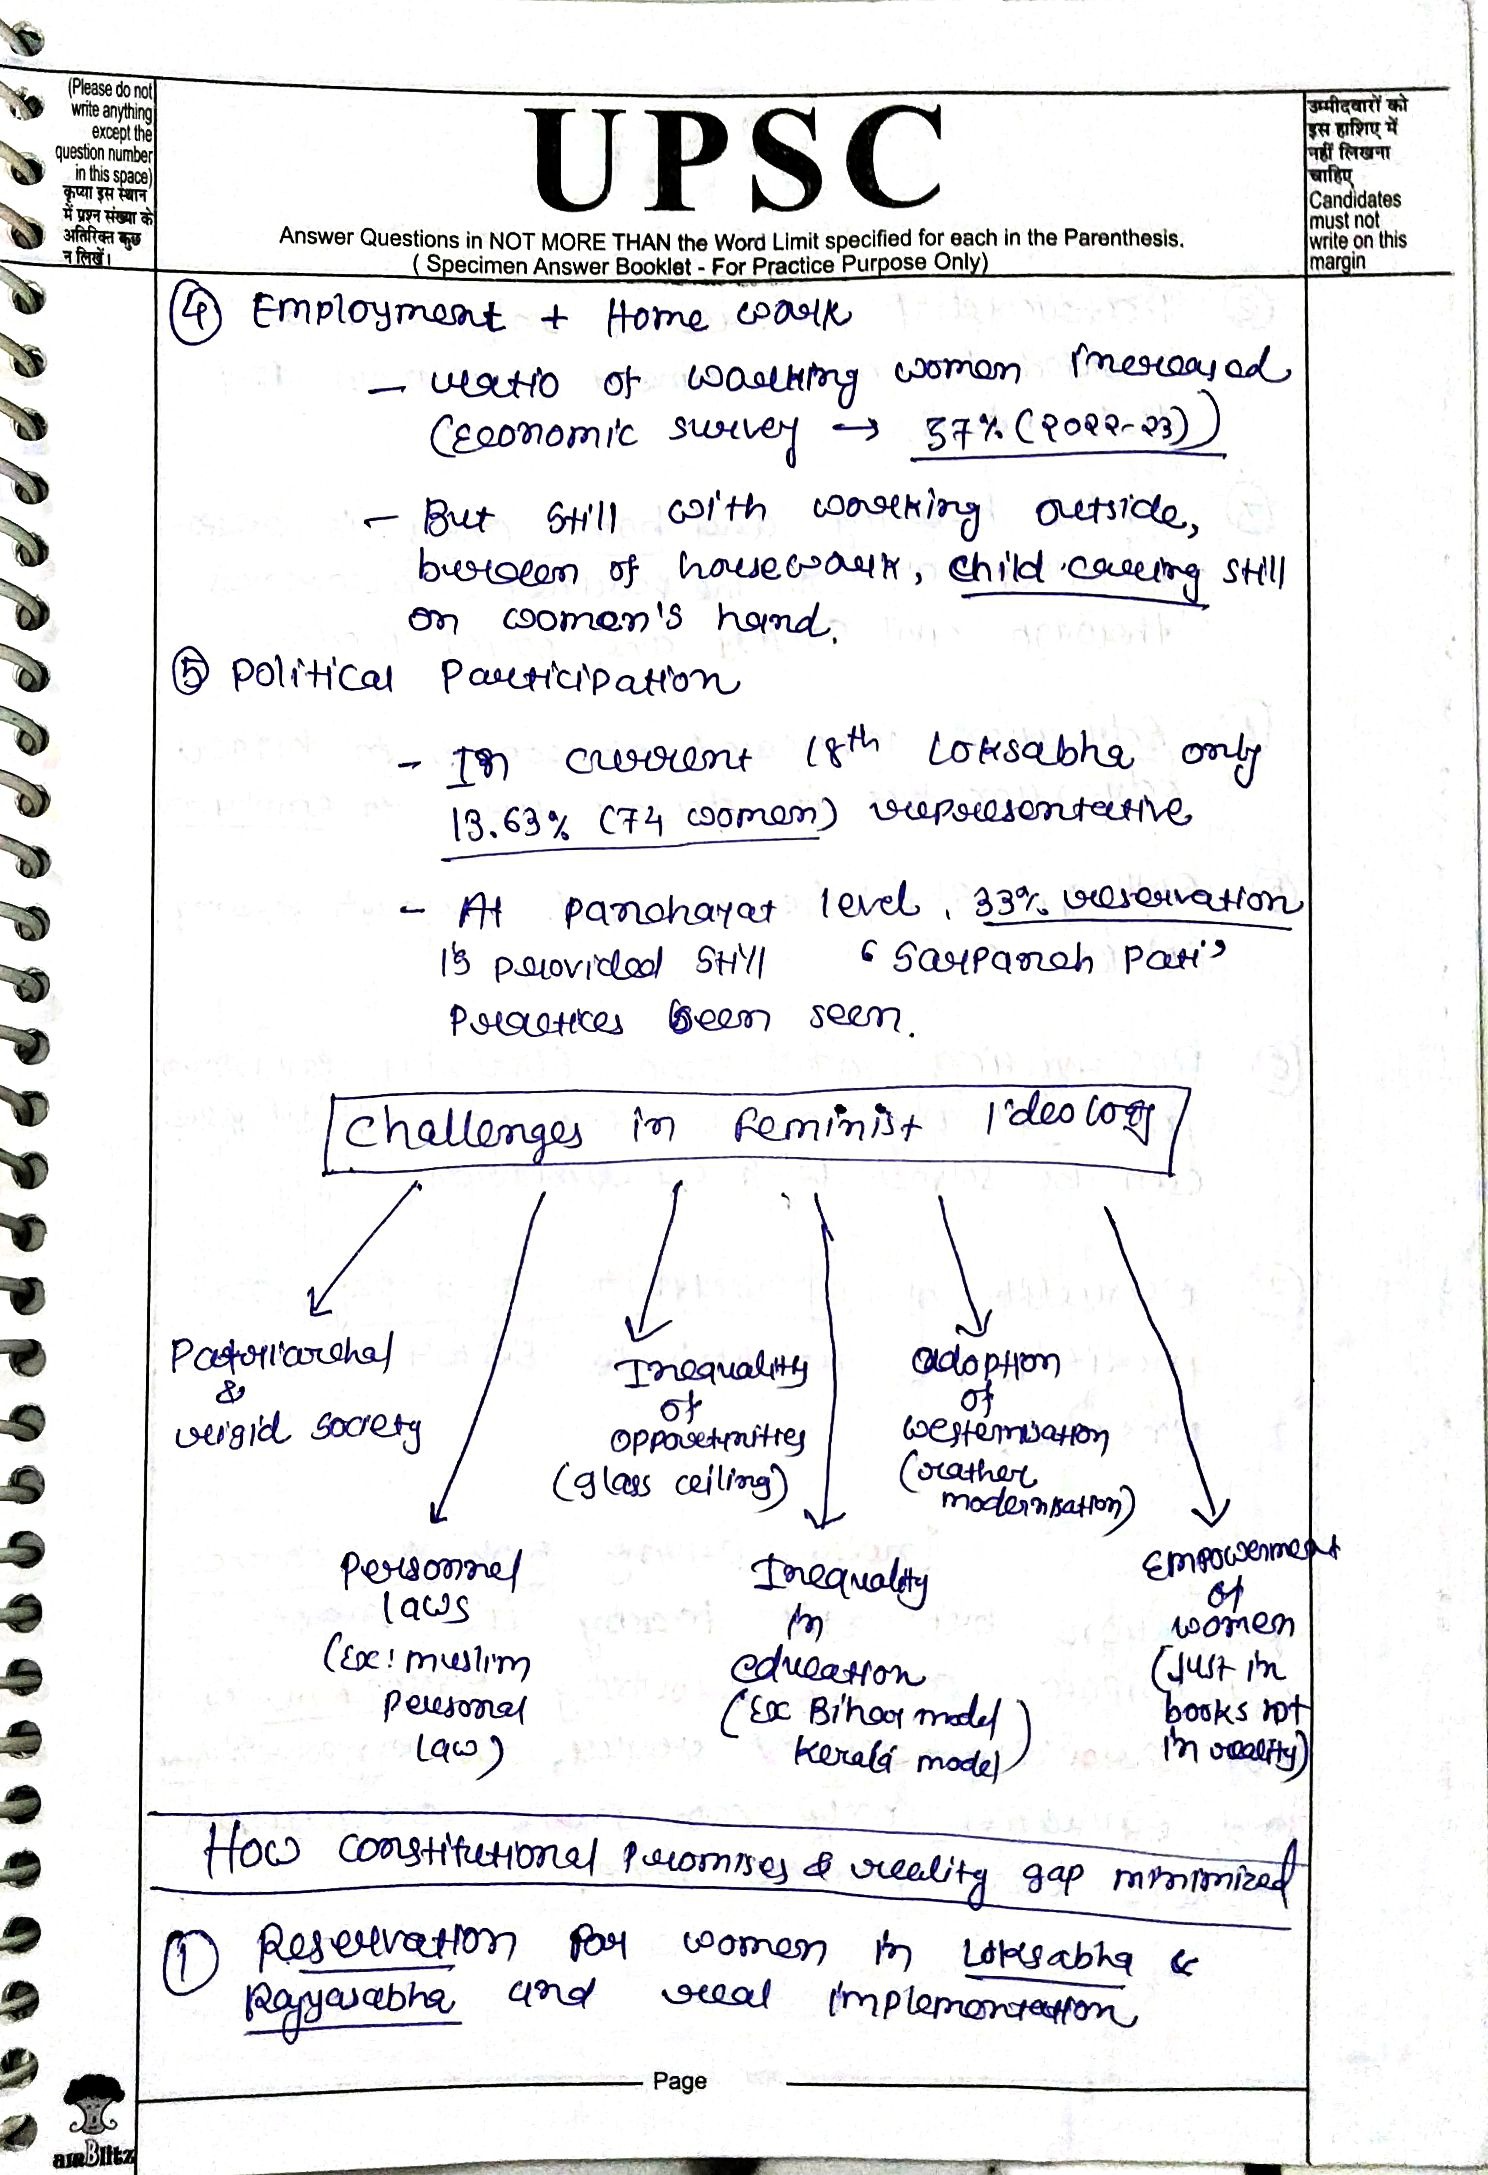 (Please do not
write anything
except the
question number
in this space)
कृप्या इस स्थान
में प्रश्न संख्या के
अतिरिक्त कुछ
न लिखें।
UPSC
Answer Questions in NOT MORE THAN the Word Limit specified for each in the Parenthesis.
( Specimen Answer Booklet - For Practice Purpose Only)
उम्मीदवारों को
इस हाशिए में
नहीं लिखना
चाहिए
Candidates
must not
write on this
margin
④ Employment + Home work
- ratio of working women increased
(Economic survey → 37% (2022-23))
- But still with working outside,
burden of housework, child caring still
on women's hand.
⑤ Political Participation
- In current 18th Loksabha only
13.63% (74 women) representative
- At panchayat level, 33% reservation
is provided still 'Sarpanch Pati'
Practices been seen.
Challenges in feminist Ideology
Patriarchal
&
rigid society
Personnel
laws
(Ex: muslim
Personal
law)
Inequality
of
opportunities
(glass ceiling)
Inequality
in
education
(Ex Bihar model
Kerala model)
adoption
of
westernisation
(rather
modernisation)
Empowerment
of
women
(Just in
books not
in reality)
How constitutional promises & reality gap minimized
① Reservation for women in Loksabha &
Rajyasabha and real implementation
Page
airBlitz